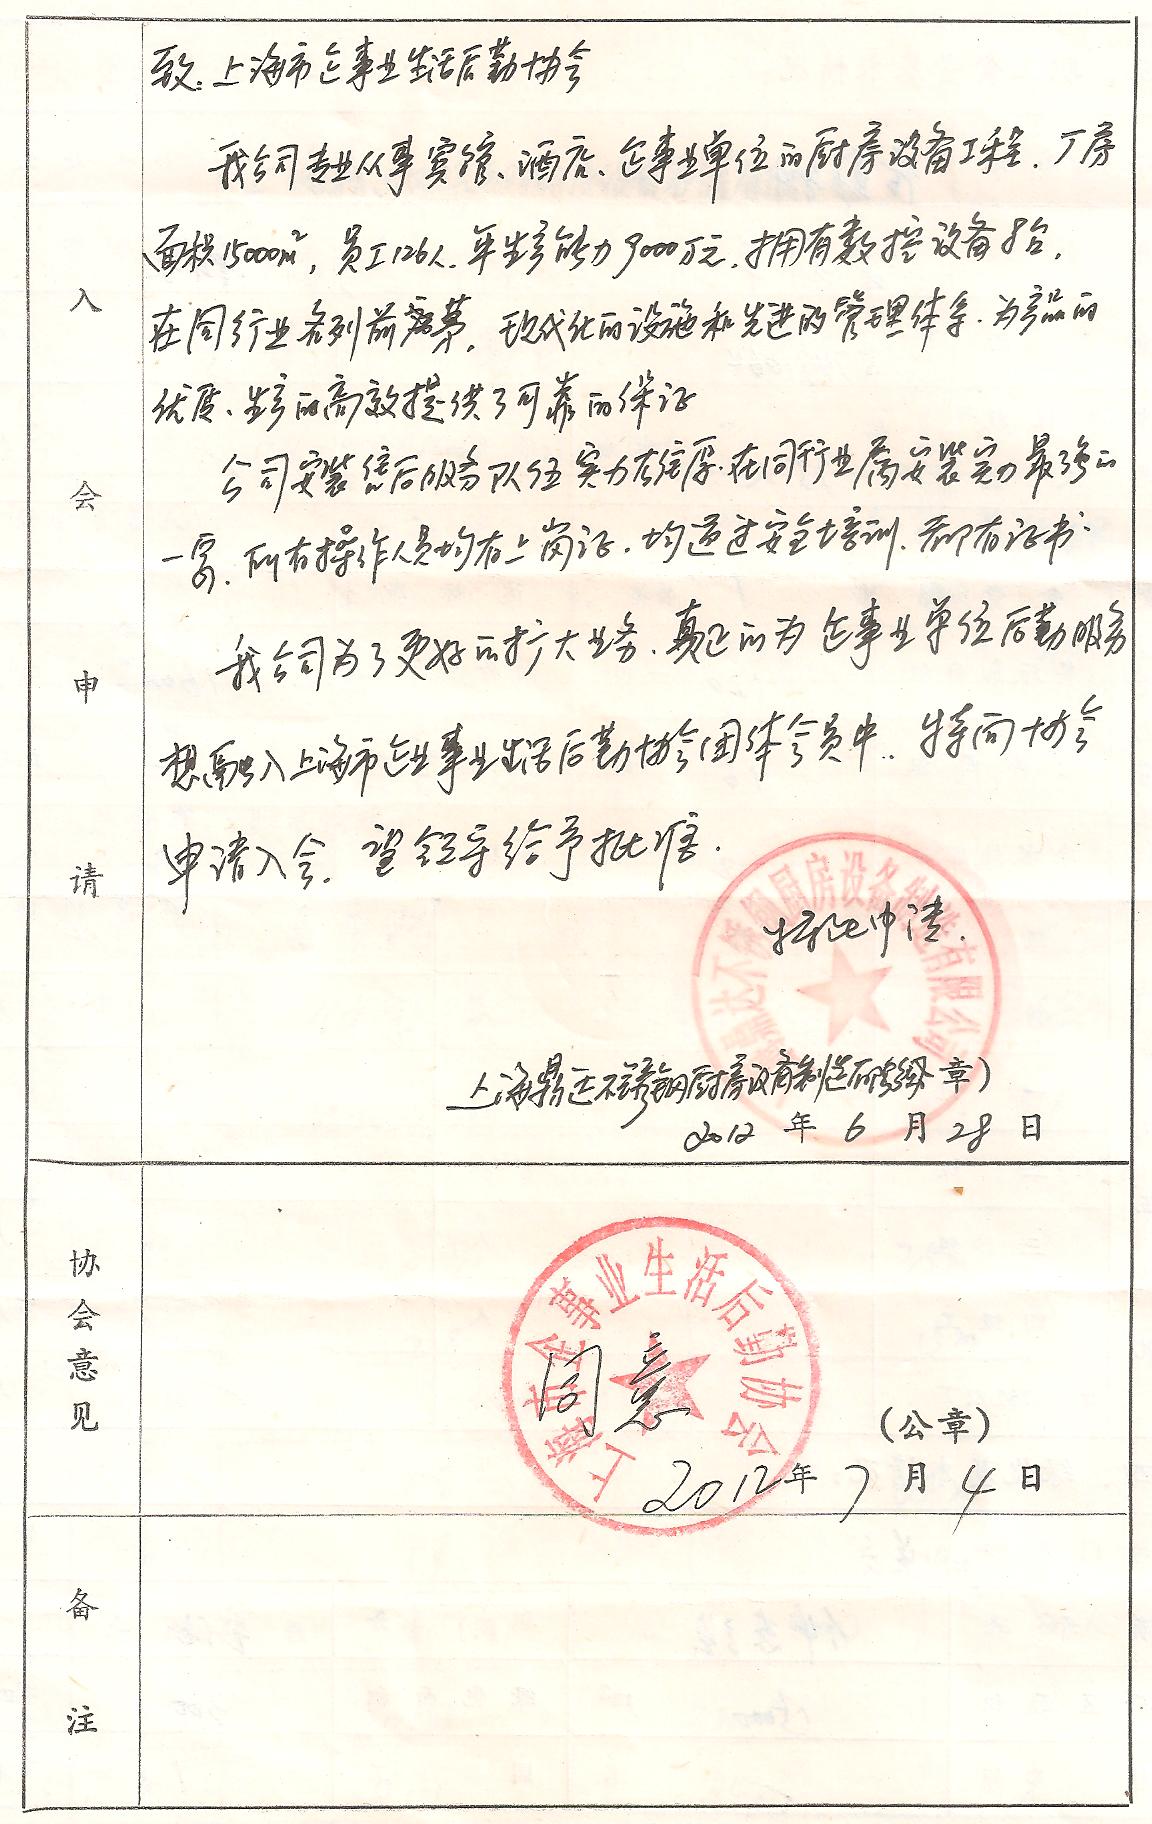 入会申请
致：上海市企事业生活后勤协会
我公司专业从事宾馆、酒店、企事业单位的厨房设备工程，厂房
面积15000㎡，员工126人，年生产能力9000万元，拥有数控设备8台，
在同行业名列前茅，现代化的设施和先进的管理体系，为产品的
优质、生产的高效提供了可靠的保证
公司安装售后服务队伍实力雄厚，在同行业属安装实力最强的
一家，所有操作人员均有上岗证，均通过安全培训，都有证书。
我公司为了更好的扩大业务，真正的为企事业单位后勤服务
想融入上海市企业事业生活后勤协会团体会员中，特向协会
申请入会，望领导给予批准。
特此申请.
上海鼎达不锈钢厨房设备制造有限公司（公章）
2012年6月28日
协会意见
上海市企事业生活后勤协会
同意
（公章）
2012年7月4日
备注